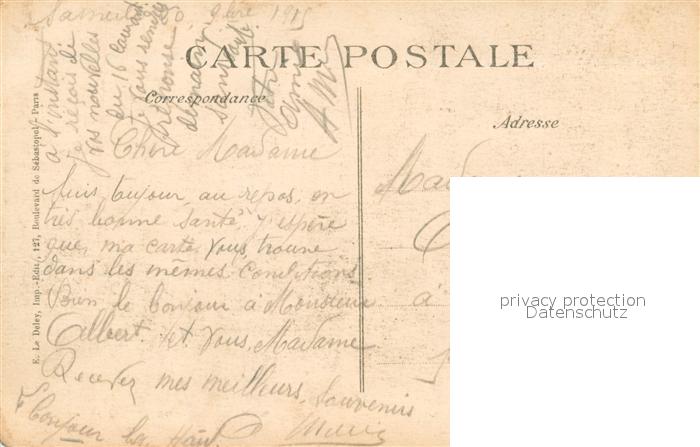 Samedi 20, 9bre 1915
CARTE POSTALE
Correspondance
Adresse
Chère Madame
suis toujour, au repos, en
très bonne santé, j'espère
que, ma carte, vous, trouve
dans les mêmes conditions
Bien le bonjour à Monsieur
Albert. et vous, Madame
Recevez mes meilleurs, souvenirs
à l'instant
je reçois de
vos nouvelles
du 16 courant
sans
réponse
Mad
à
bonjour
E. Le Deley, Imp.-Edit., 127, Boulevard de Sébastopol, Paris
privacy protection
Datenschutz